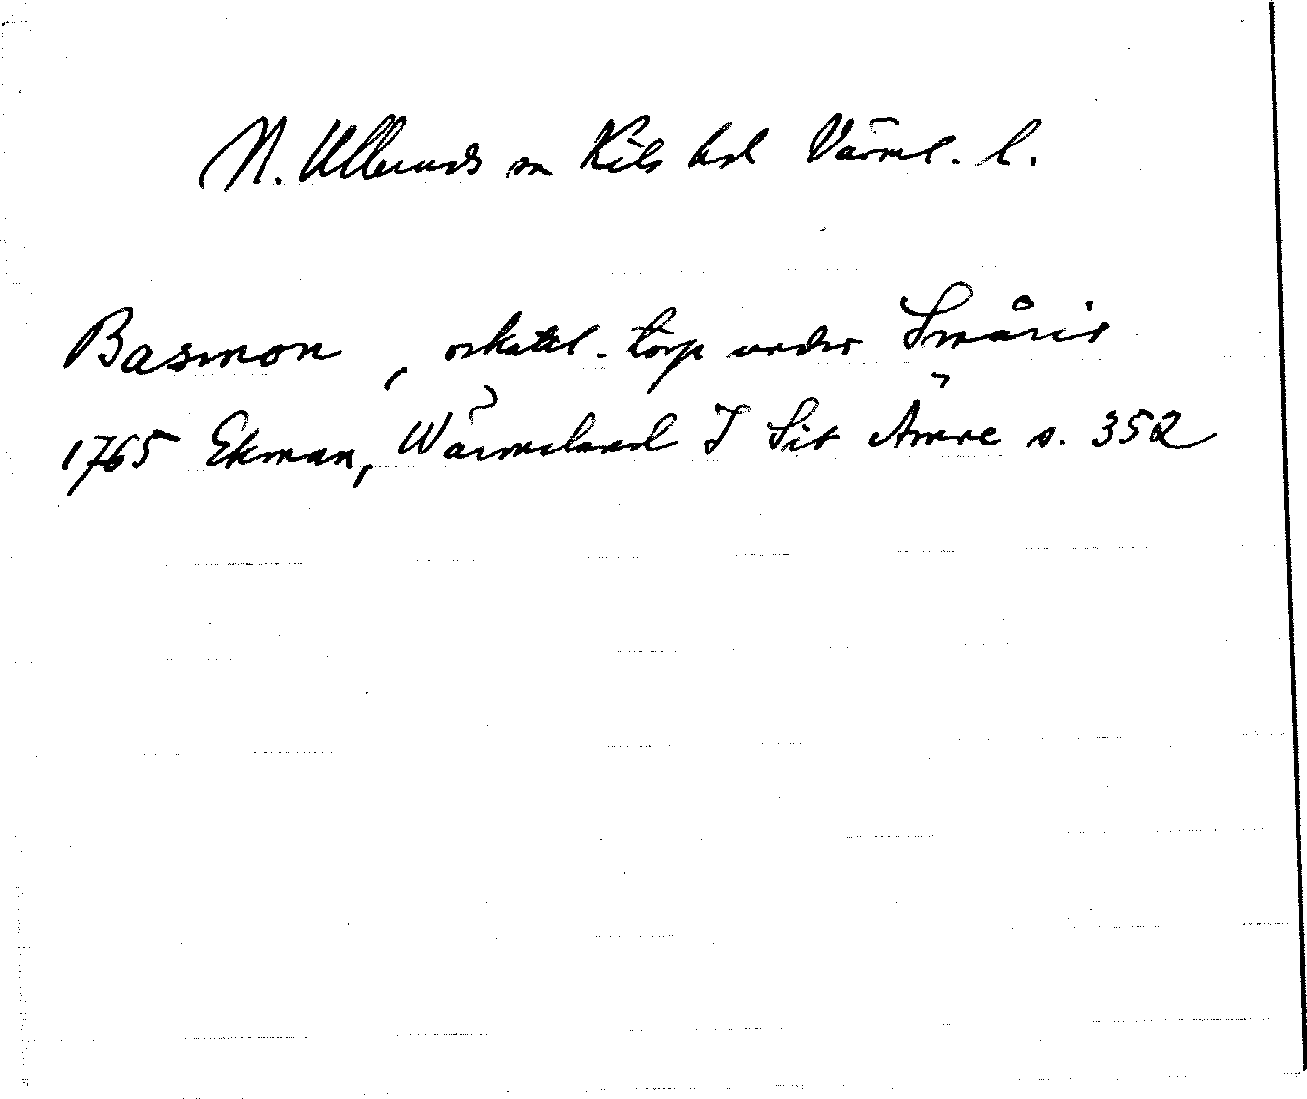 N. Ulleruds sn Kils hd Värml. l.
Basmon, oskattl. torp under Småris
1765 Ekman, Wärmeland I Sit Ämne s. 352